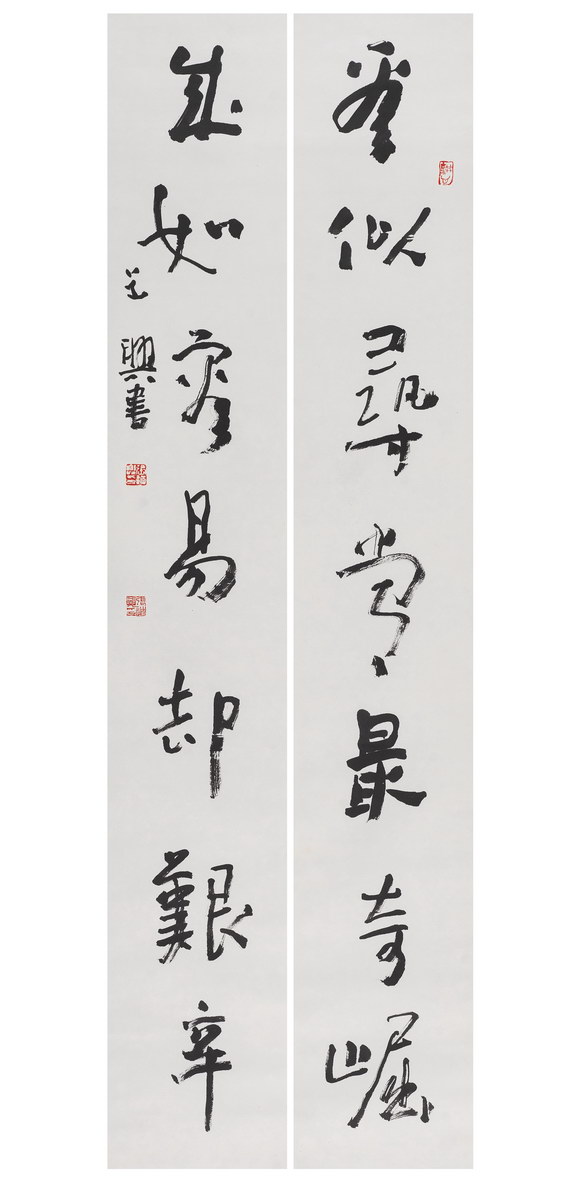 看似尋常最奇崛
成如容易却艱辛
興書